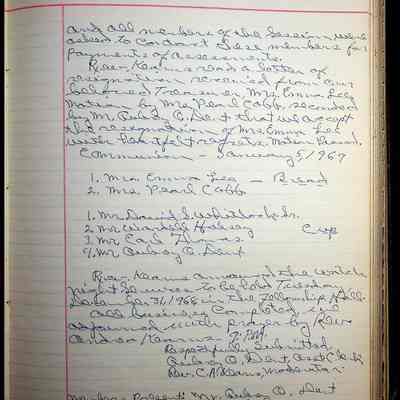 and all members of the Session were
asked to contact these members for
payments of assessments.
Rev. Kearns read a letter of
resignation received from our
beloved Treasurer, Mrs. Emma Lee
Motion by Mrs. Pearl Cobb, seconded
by Mr. Aubry O. Dent that we accept
the resignation of Mrs. Emma Lee
with heartfelt regrets. Motion Passed.
Communion - January 5, 1969
1. Mrs. Emma Lee - Bread
2. Mrs. Pearl Cobb
1. Mr. David S. Whitlock, Sr.
2. Mr. Wardell Halsey Cup
3. Mr. Earl
4. Mr. Aubrey O. Dent
Rev. Kearns announced the Watch
night Services to be held Tuesday
December 31, 1968 in the Fellowship Hall.
All business completed, and
adjourned with prayer by Rev.
Kearns
Respectfully Submitted
Aubrey O. Dent, Asst Clerk
Rev. C. A. Kearns, Moderator
Members Present: Mr. Aubrey O. Dent